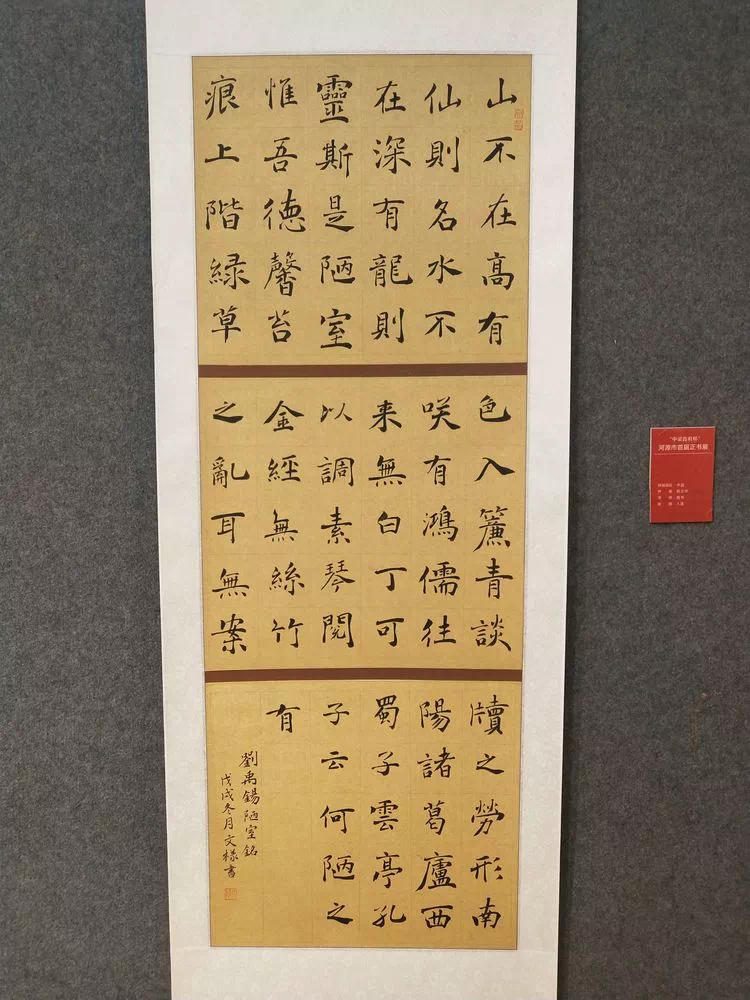 山不在高有
仙則名水不
在深有龍則
靈斯是陋室
惟吾德馨苔
痕上階緑草
色入簾青談
咲有鴻儒往
来無白丁可
以調素琴閱
金經無絲竹
之亂耳無案
牘之勞形南
陽諸葛廬西
蜀子雲亭孔
子云何陋之
有
劉禹錫陋室銘
戊戌冬月文樣書
河源市首届正书展